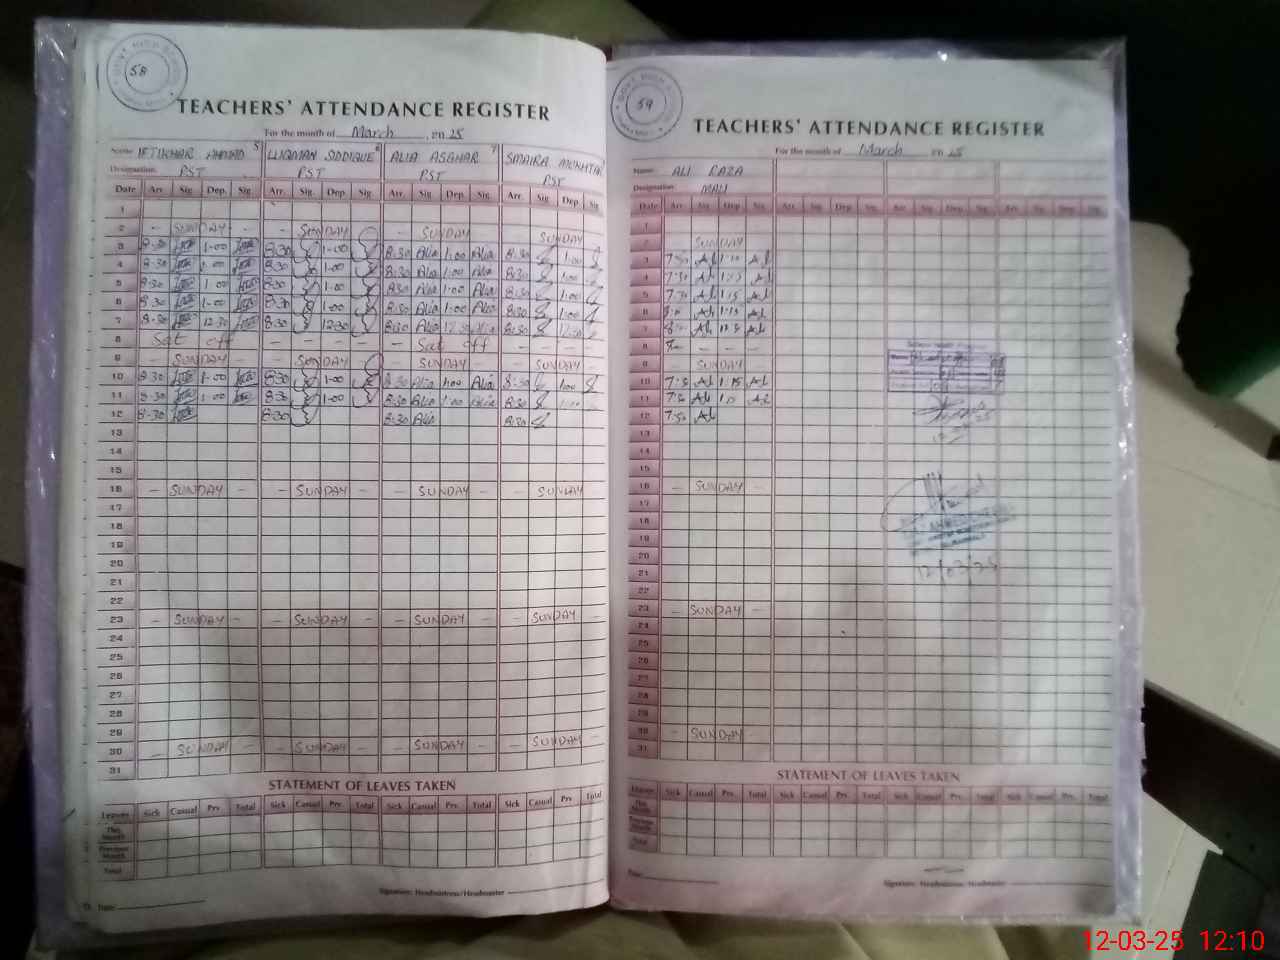 58
GOVT. HIGH SCHOOL
TEACHERS' ATTENDANCE REGISTER
For the month of March , on 25
Name IFTIKHAR AHMAD 5 LUQMAN SIDDIQUE 6 ALIA ASGHAR 7 SMAIRA MUKHTIAR
Designation. PST PST PST PST
Date Arr. Sig. Dep. Sig. Arr. Sig. Dep. Sig. Arr. Sig. Dep. Sig. Arr. Sig. Dep. Sig.
1
2 - SUNDAY - - SUNDAY - SUNDAY - SUNDAY
3 8-30 1-00 8:30 1-00 8:30 Alia 1:00 Alia 8:30 1:00
4 8-30 1-00 8:30 1-00 8:30 Alia 1:00 Alia 8:30 1:00
5 8-30 1-00 8:30 1-00 8:30 Alia 1:00 Alia 8:30 1:00
6 8-30 1-00 8:30 1-00 8:30 Alia 1:00 Alia 8:30 1:00
7 8-30 12-30 8:30 12-30 8:30 Alia 12:30 Alia 8:30 12:30
8 Sat off - - - - - Sat off - - - -
9 - SUNDAY - - SUNDAY - SUNDAY - - SUNDAY -
10 8-30 1-00 8:30 1-00 8:30 Alia 1:00 Alia 8:30 1:00
11 8-30 1-00 8:30 1-00 8:30 Alia 1:00 Alia 8:30 1:00
12 8-30 8:30 8:30 Alia 8:30
13
14
15
16 - SUNDAY - - SUNDAY - - SUNDAY - - SUNDAY
17
18
19
20
21
22
23 - SUNDAY - - SUNDAY - - SUNDAY - - SUNDAY -
24
25
26
27
28
29
30 - SUNDAY - - SUNDAY - - SUNDAY - - SUNDAY -
31
STATEMENT OF LEAVES TAKEN
Leaves Sick Casual Prv. Total Sick Casual Prv. Total Sick Casual Prv. Total Sick Casual Prv. Total
This Month
Previous Month
Total
Signature: Headmistress/Headmaster
Date
59
GOVT. HIGH SCHOOL
TEACHERS' ATTENDANCE REGISTER
For the month of March on 25
Name: ALI RAZA
Designation: MALI
Date Arr. Sig. Dep. Sig. Arr. Sig. Dep. Sig. Arr. Sig. Dep. Sig. Arr. Sig. Dep. Sig.
1
2 SUNDAY
3 7:30 Ali Ali
4 7:30 Ali 1:15 Ali
5 7:30 Ali 1:15 Ali
6 Ali 1:15 Ali
7 Ali Ali
8 - - -
9 - SUNDAY -
10 7:30 Ali 1:15 Ali
11 7:30 Ali Ali
12 7:30 Ali
13
14
15
16 - SUNDAY -
17
18
19
20
21
22
23 - SUNDAY -
24
25
26
27
28
29
30 - SUNDAY -
31
12/03/25
STATEMENT OF LEAVES TAKEN
Leaves Sick Casual Prv. Total Sick Casual Prv. Total Sick Casual Prv. Total Sick Casual Prv. Total
This Month
Previous Month
Total
Date
Signature: Headmistress/Headmaster
12-03-25 12:10